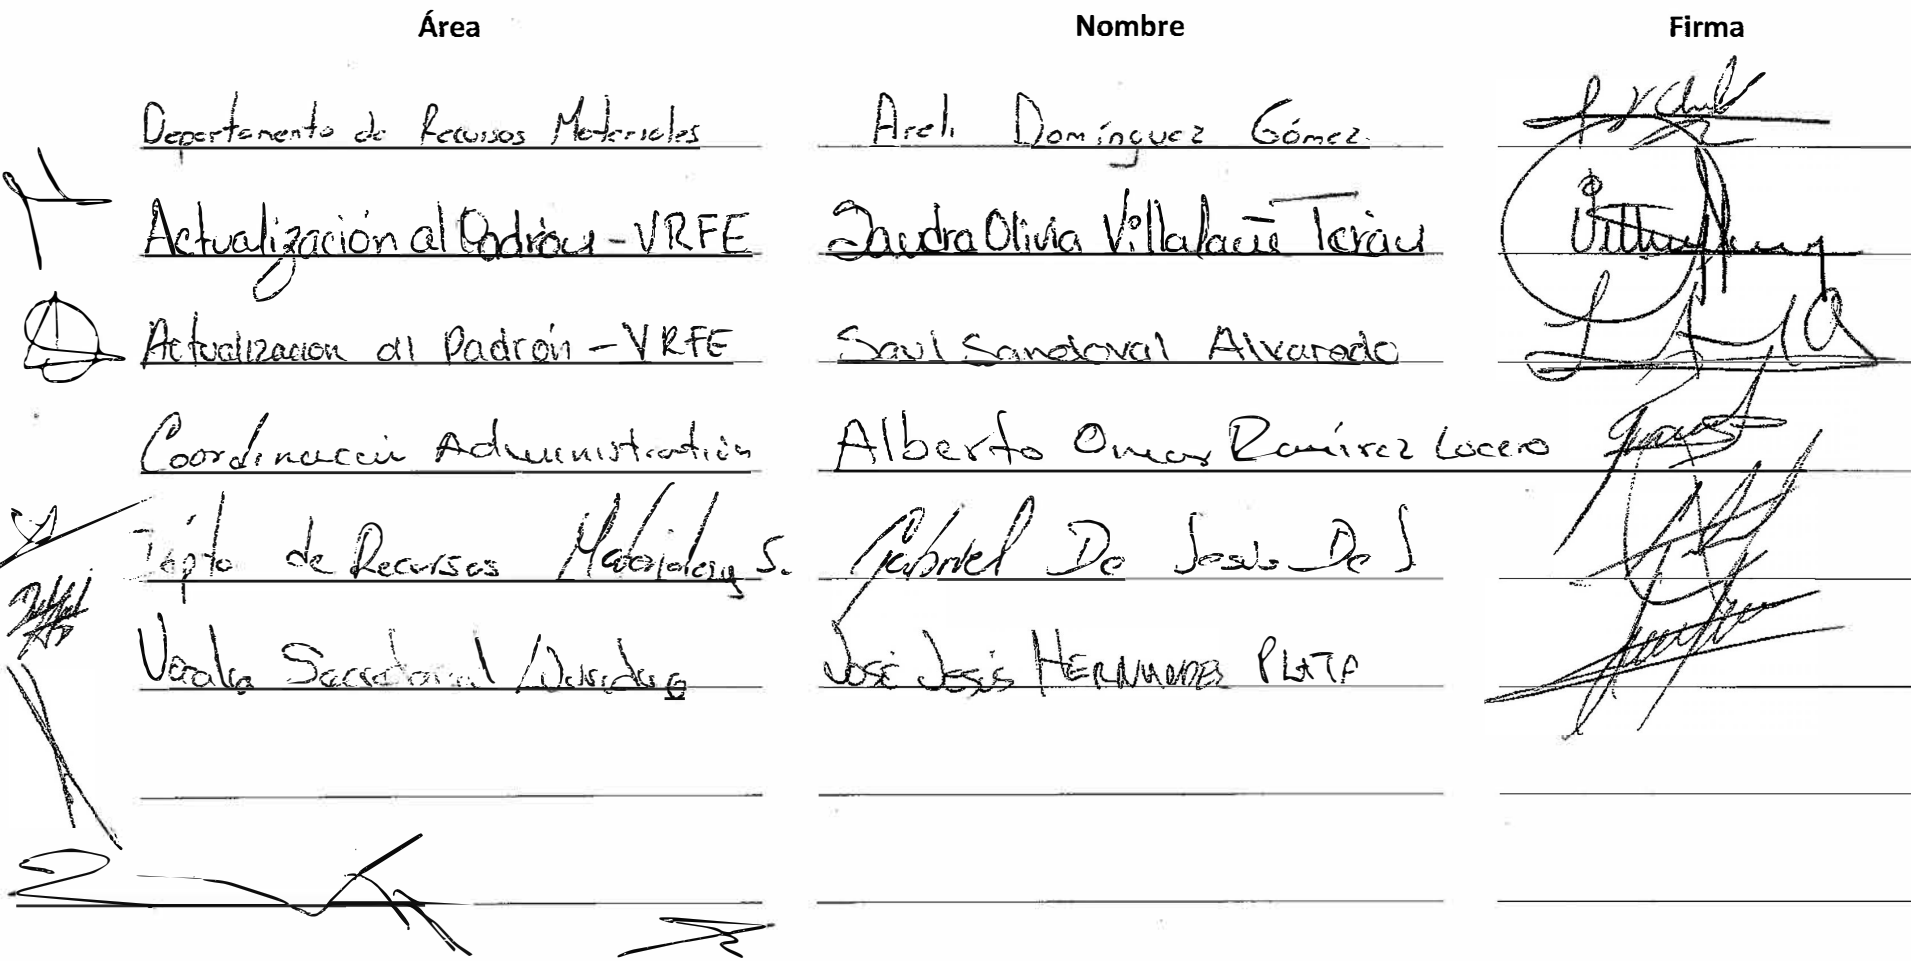 Área Nombre Firma
Departamento de Recursos Materiales Areli Domínguez Gómez
Actualización al Padrón - VRFE Sandra Olivia Villafañe Terán
Actualizacion al Padrón - VRFE Saul Sandoval Alvarado
Coordinación Administrativa Alberto Omar Ramírez Lucero
de Recursos Materiales y S. Gabriel De Jesús De J
Vocalía Secretarial José Jesús HERNANDEZ PLATA